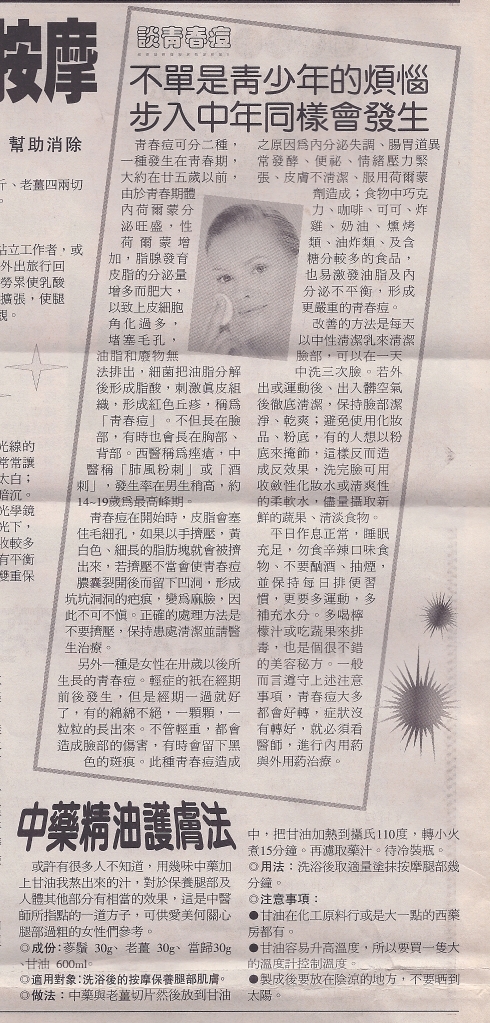 按摩
幫助消除
斤、老薑四兩切
。
站立工作者，或
外出旅行回
勞累使乳酸
擴張，使腿
觀。
光線的
常常讓
太白；
暗沉。
光學鏡
光下，
收較多
有平衡
雙重保
談青春痘
不單是青少年的煩惱
步入中年同樣會發生
青春痘可分二種，
一種發生在青春期，
大約在廿五歲以前，
由於青春期體
內荷爾蒙分
泌旺盛，性
荷爾蒙增
加，脂腺發育
皮脂的分泌量
增多而肥大，
以致上皮細胞
角化過多，
堵塞毛孔，
油脂和廢物無
法排出，細菌把油脂分解
後形成脂酸，刺激真皮組
織，形成紅色丘疹，稱爲
「青春痘」。不但長在臉
部，有時也會長在胸部、
背部。西醫稱爲痤瘡，中
醫稱「肺風粉刺」或「酒
刺」，發生率在男生稍高，約
14~19歲爲最高峰期。
青春痘在開始時，皮脂會塞
住毛細孔，如果以手擠壓，黃
白色、細長的脂肪塊就會被擠
出來，若擠壓不當會使青春痘
膿囊裂開後而留下凹洞，形成
坑坑洞洞的疤痕，變爲麻臉，因
此不可不愼。正確的處理方法是
不要擠壓，保持患處清潔並請醫
生治療。
另外一種是女性在卅歲以後所
生長的青春痘。輕症的祇在經期
前後發生，但是經期一過就好
了，有的綿綿不絕，一顆顆，一
粒粒的長出來。不管輕重，都會
造成臉部的傷害，有時會留下黑
色的斑痕。此種青春痘造成
之原因爲內分泌失調、腸胃道異
常發酵、便祕、情緒壓力緊
張、皮膚不清潔、服用荷爾蒙
劑造成；食物中巧克
力、咖啡、可可、炸
雞、奶油、燻烤
類、油炸類、及含
糖分較多的食品，
也易激發油脂及內
分泌不平衡，形成
更嚴重的青春痘。
改善的方法是每天
以中性清潔乳來清潔
臉部，可以在一天
中洗三次臉。若外
出或運動後、出入髒空氣
後徹底清潔，保持臉部潔
淨、乾爽；避免使用化妝
品、粉底，有的人想以粉
底來掩飾，這樣反而造
成反效果，洗完臉可用
收斂性化妝水或清爽性
的柔軟水，儘量攝取新
鮮的蔬果、清淡食物。
平日作息正常，睡眠
充足，勿食辛辣口味食
物、不要酗酒、抽煙，
並保持每日排便習
慣，更要多運動，多
補充水分。多喝檸
檬汁或吃蔬果來排
毒，也是個很不錯
的美容秘方。一般
而言遵守上述注意
事項，青春痘大多
都會好轉，症狀沒
有轉好，就必須看
醫師，進行內用藥
與外用藥治療。
中藥精油護膚法
或許有很多人不知道，用幾味中藥加
上甘油我熬出來的汁，對於保養腿部及
人體其他部分有相當的效果，這是中醫
師所指點的一道方子，可供愛美何關心
腿部過粗的女性們參考。
◎成份：蔘鬚 30g、老薑 30g、當歸30g
、甘油 600ml。
◎適用對象：洗浴後的按摩保養腿部肌膚。
◎做法：中藥與老薑切片然後放到甘油
中，把甘油加熱到攝氏110度，轉小火
煮15分鐘。再濾取藥汁。待冷裝瓶。
◎用法：洗浴後取適量塗抹按摩腿部幾
分鐘。
◎注意事項：
●甘油在化工原料行或是大一點的西藥
房都有。
●甘油容易升高溫度，所以要買一隻大
的溫度計控制溫度。
●製成後要放在陰涼的地方，不要晒到
太陽。